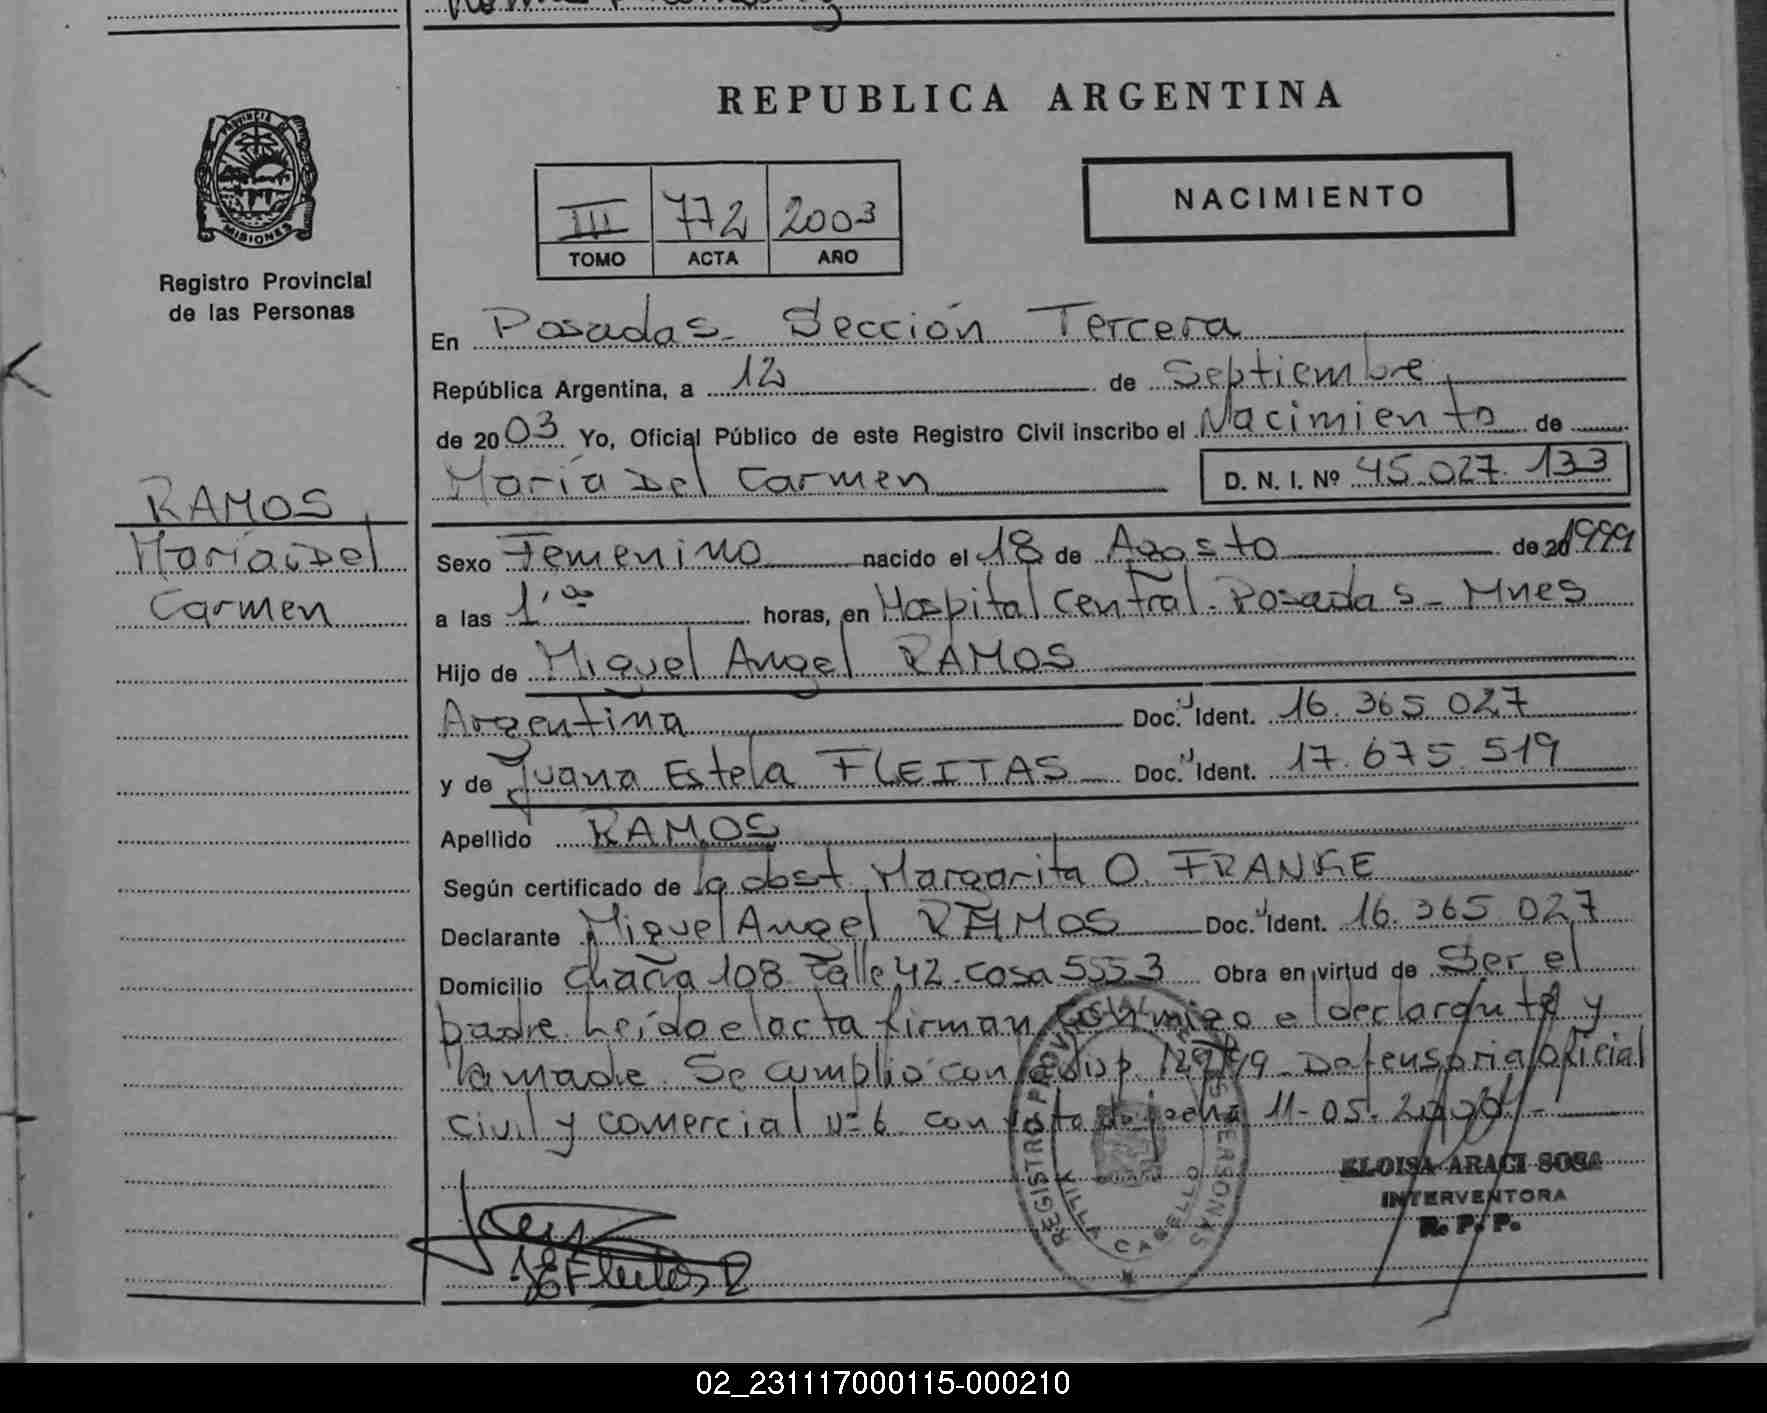 REPUBLICA ARGENTINA
PROVINCIA DE
MISIONES
Registro Provincial
de las Personas
III 772 2003
TOMO ACTA AÑO
NACIMIENTO
En Posadas - Sección Tercera
República Argentina, a 12 de Septiembre
de 2003 Yo, Oficial Público de este Registro Civil inscribo el Nacimiento de
María Del Carmen D. N. I. Nº 45.027.133
RAMOS
María Del
Carmen
Sexo Femenino nacido el 18 de Agosto de 20 1999
a las 1,ºº horas, en Hospital Central - Posadas - Mnes
Hijo de Miguel Angel RAMOS
Argentina Doc. Ident. 16.365.027
y de Juana Estela FLEITAS Doc. Ident. 17.675.519
Apellido RAMOS
Según certificado de la obst. Margarita O. FRANKE
Declarante Miguel Angel RAMOS Doc. Ident. 16.365.027
Domicilio Chacra 108 Calle 42 - Casa 5553 Obra en virtud de Ser el
padre. Leído el acta firman conmigo el declarante y
la madre. Se cumplió con disp. 129/99 - Defensoria oficial
civil y comercial Nº 6 con fecha 11-05-
ELOISA ARACI SOSA
INTERVENTORA
R. P. P.
REGISTRO PROVINCIAL DE LAS PERSONAS
VILLA CABELLO
JEFleitas R
02_231117000115-000210